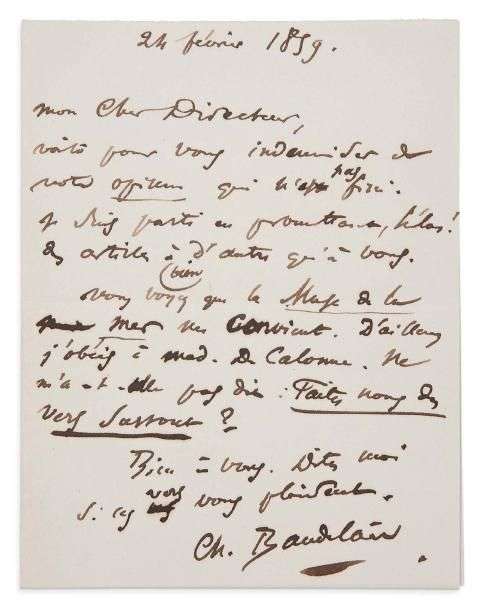 24 février 1859.
mon Cher Directeur,
voilà pour vous indemniser de
votre opium qui n'est pas fini.
je suis parti en promettant, hélas!
des articles à d'autres qu'à vous.
vous voyez bien que la Muse de la
Mer me convient. D'ailleurs
j'obéis à mad. de Calonne. Ne
m'a-t-elle pas dit : Faites nous des
vers surtout ?
Bien à vous. Dites moi
si ces vers vous plaident.
Ch. Baudelaire.